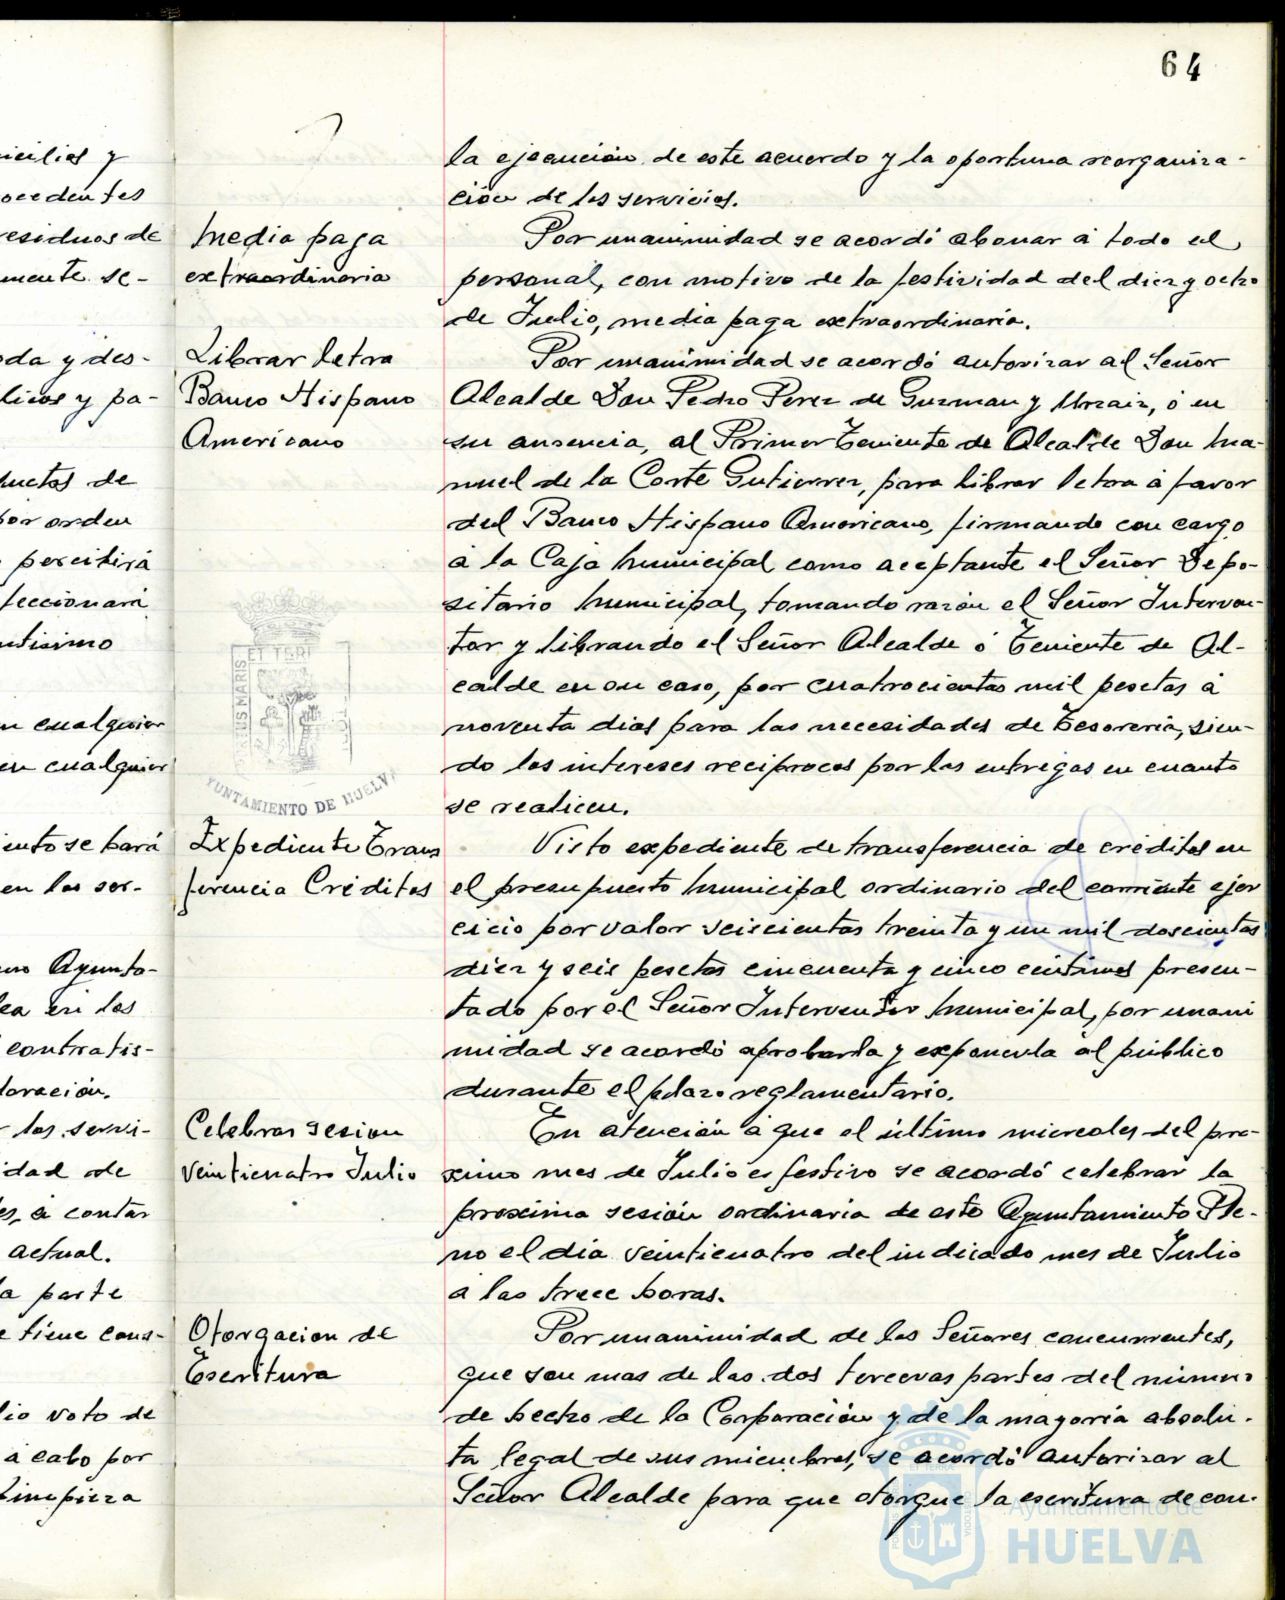 64
icilios y
ocedentes
residuos de
mente se-
oda y des-
licos y pa-
uctos de
por orden
percibirá
feccionará
ntisimo
en cualquier
en cualquier
iento se hará
en los ser-
mo Ayunta-
ea en los
contratis-
loración.
los servi-
idad de
es, á contar
actual.
la parte
e tiene cons-
lio voto de
á cabo por
limpieza
Media paga
extraordinaria
Librar letra
Banco Hispano
Americano
ET TERR
US MARIS
YUNTAMIENTO DE HUELVA
Expediente Trans
ferencia Créditos
Celebrar sesion
veinticuatro Julio
Otorgacion de
Escritura
la ejecución de este acuerdo y la oportuna reorganiza-
ción de los servicios.
Por unanimidad se acordó abonar á todo el
personal, con motivo de la festividad del diez y ocho
de Julio, media paga extraordinaria.
Por unanimidad se acordó autorizar al Señor
Alcalde Don Pedro Perez de Guzman y Urzaiz, ó en
su ausencia, al Primer Teniente de Alcalde Don Ma-
nuel de la Corte Gutierrez, para librar letra á favor
del Banco Hispano Americano, firmando con cargo
á la Caja Municipal como aceptante el Señor Depo-
sitario Municipal, tomando razón el Señor Interven-
tor y librando el Señor Alcalde ó Teniente de Al-
calde en su caso, por cuatrocientas mil pesetas á
noventa dias para las necesidades de Tesoreria, sien-
do los intereses reciprocos por las entregas en cuanto
se realicen.
Visto expediente de transferencia de créditos en
el presupuesto Municipal ordinario del corriente ejer
cicio por valor seiscientas treinta y un mil doscientas
diez y seis pesetas cincuenta y cinco centimos presen-
tado por el Señor Interventor Municipal, por unani
midad se acordó aprobarla y exponerla al público
durante el plazo reglamentario.
En atención á que el último miercoles del pro-
ximo mes de Julio es festivo se acordó celebrar la
proxima sesión ordinaria de este Ayuntamiento Ple-
no el día veinticuatro del indicado mes de Julio
á las trece horas.
Por unanimidad de los Señores concurrentes,
que son mas de las dos terceras partes del número
de hecho de la Corporación y de la mayoría absolu-
ta legal de sus miembros, se acordó autorizar al
Señor Alcalde para que otorgue la escritura de con-
Ayuntamiento de
HUELVA